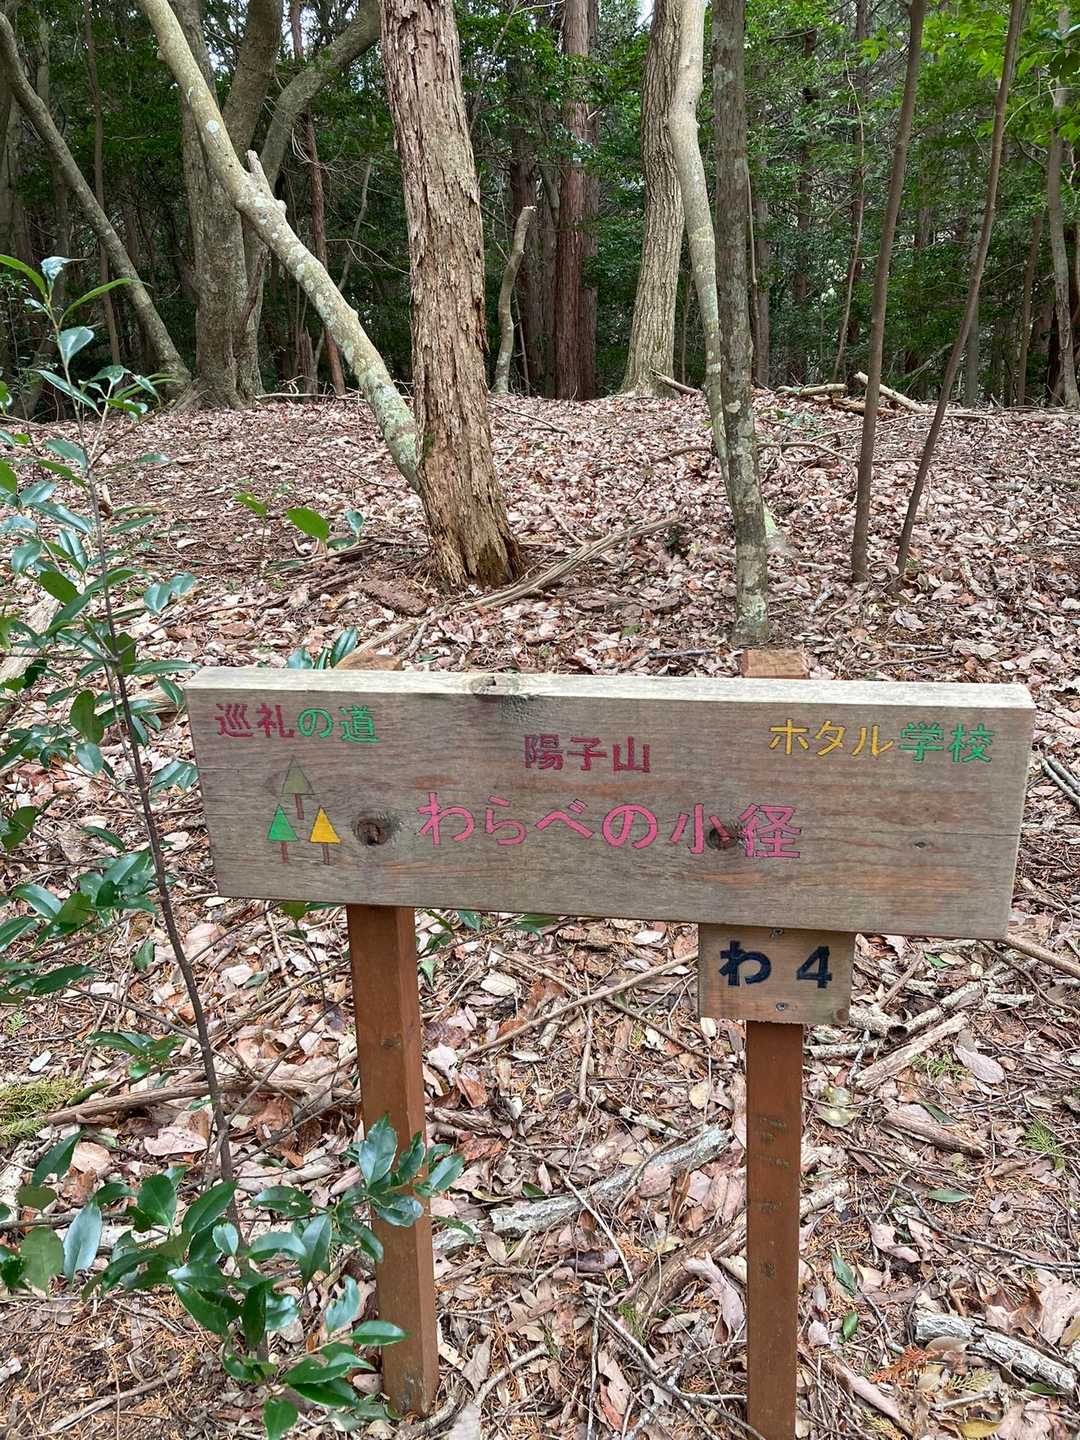 巡礼の道
陽子山
ホタル学校
わらべの小径
わ4